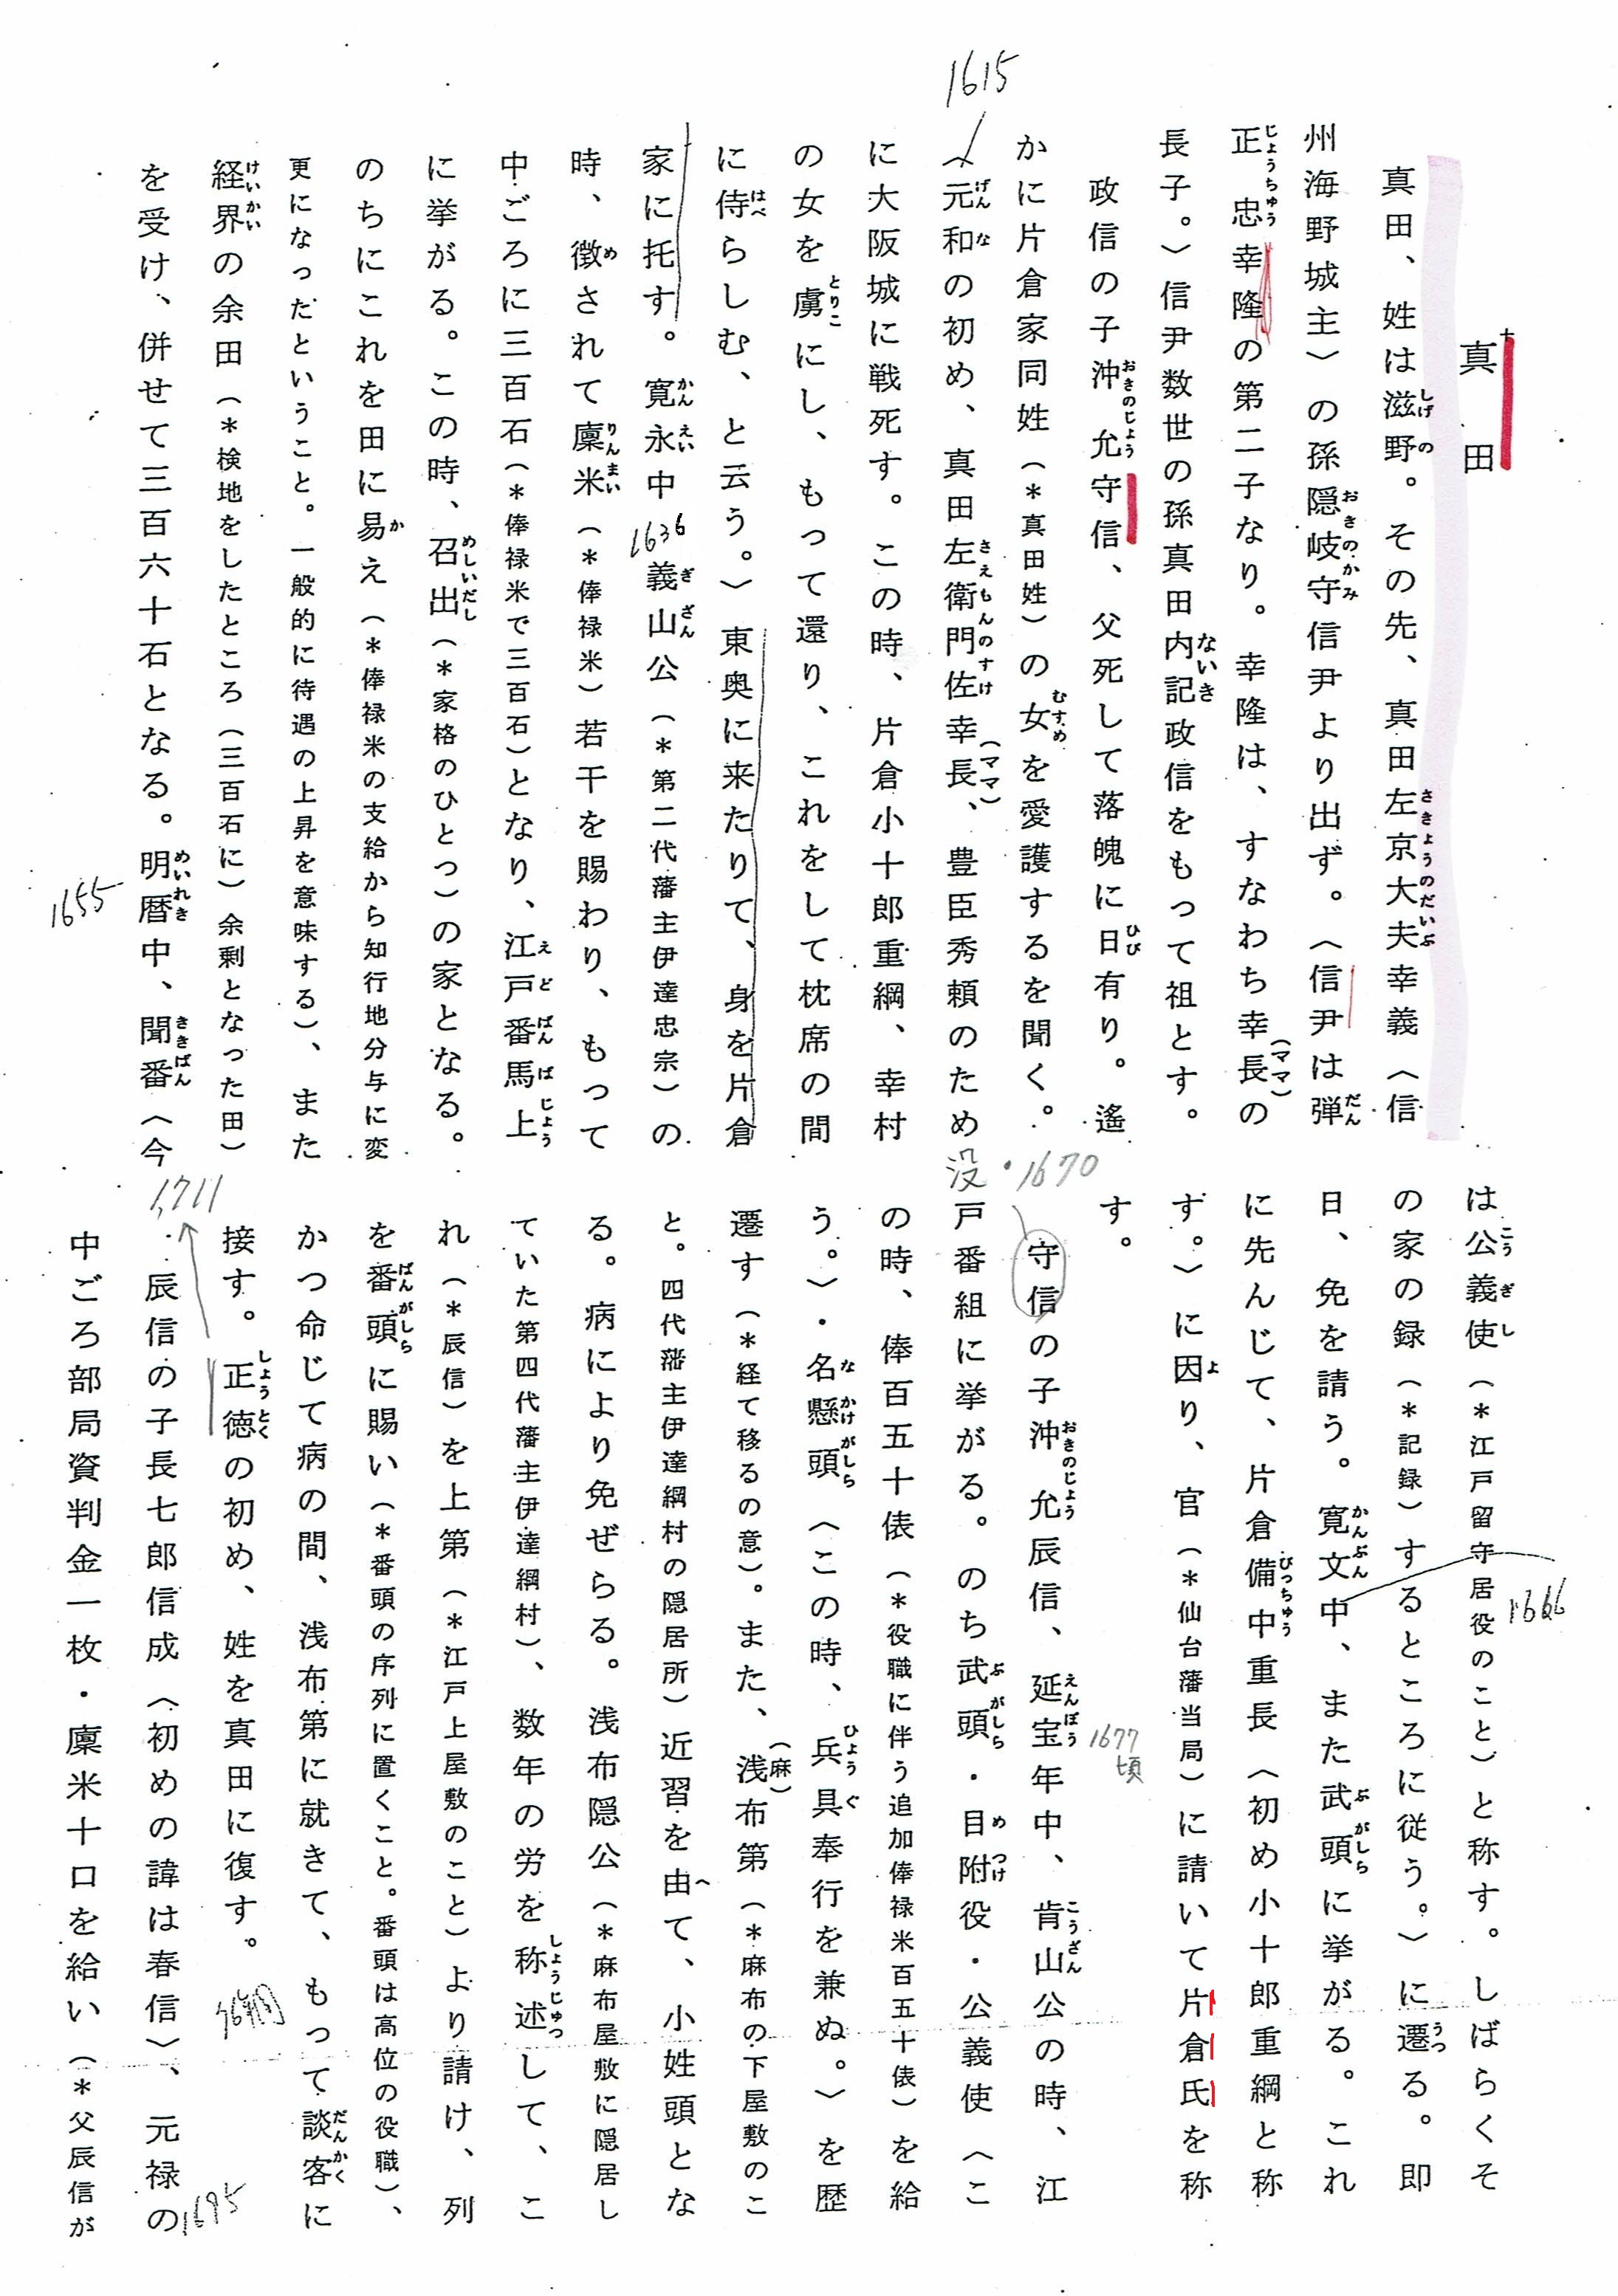 真田
真田、姓は滋野。その先、真田左京大夫幸義〈信
州海野城主〉の孫隠岐守信尹より出ず。〈信尹は弾
正忠幸隆の第二子なり。幸隆は、すなわち幸長(ママ)の
長子。〉信尹数世の孫真田内記政信をもって祖とす。
政信の子沖允守信、父死して落魄に日有り。遙
かに片倉家同姓(*真田姓)の女を愛護するを聞く。
〈元和の初め、真田左衛門佐幸長(ママ)、豊臣秀頼のため
に大阪城に戦死す。この時、片倉小十郎重綱、幸村
の女を虜にし、もって還り、これをして枕席の間
に侍らしむ、と云う。〉東奥に来たりて、身を片倉
家に托す。寛永中義山公(*第二代藩主伊達忠宗)の
時、徴されて廩米(*俸禄米)若干を賜わり、もって
中ごろに三百石(*俸禄米で三百石)となり、江戸番馬上
に挙がる。この時、召出(*家格のひとつ)の家となる。
のちにこれを田に易え(*俸禄米の支給から知行地分与に変
更になったということ。一般的に待遇の上昇を意味する)、また
経界の余田(*検地をしたところ(三百石に)余剰となった田)
を受け、併せて三百六十石となる。明暦中、聞番〈今
は公義使(*江戸留守居役のこと)と称す。しばらくそ
の家の録(*記録)するところに従う。〉に遷る。即
日、免を請う。寛文中、また武頭に挙がる。これ
に先んじて、片倉備中重長〈初め小十郎重綱と称
ず。〉に因り、官(*仙台藩当局)に請いて片倉氏を称
す。
守信の子沖允辰信、延宝年中、肯山公の時、江
戸番組に挙がる。のち武頭・目附役・公義使〈こ
の時、俸百五十俵(*役職に伴う追加俸禄米百五十俵)を給
う。〉・名懸頭〈この時、兵具奉行を兼ぬ。〉を歴
遷す(*経て移るの意)。また、浅(麻)布第(*麻布の下屋敷のこ
と。四代藩主伊達綱村の隠居所)近習を由て、小姓頭とな
る。病により免ぜらる。浅布隠公(*麻布屋敷に隠居し
ていた第四代藩主伊達綱村)、数年の労を称述して、こ
れ(*辰信)を上第(*江戸上屋敷のこと)より請け、列
を番頭に賜い(*番頭の序列に置くこと。番頭は高位の役職)、
かつ命じて病の間、浅布第に就きて、もって談客に
接す。正徳の初め、姓を真田に復す。
辰信の子長七郎信成〈初めの諱は春信〉、元禄の
中ごろ部局資判金一枚・廩米十口を給い(*父辰信が
1615
1636
1655
1666
没・1670
1677
頃
1711
1695